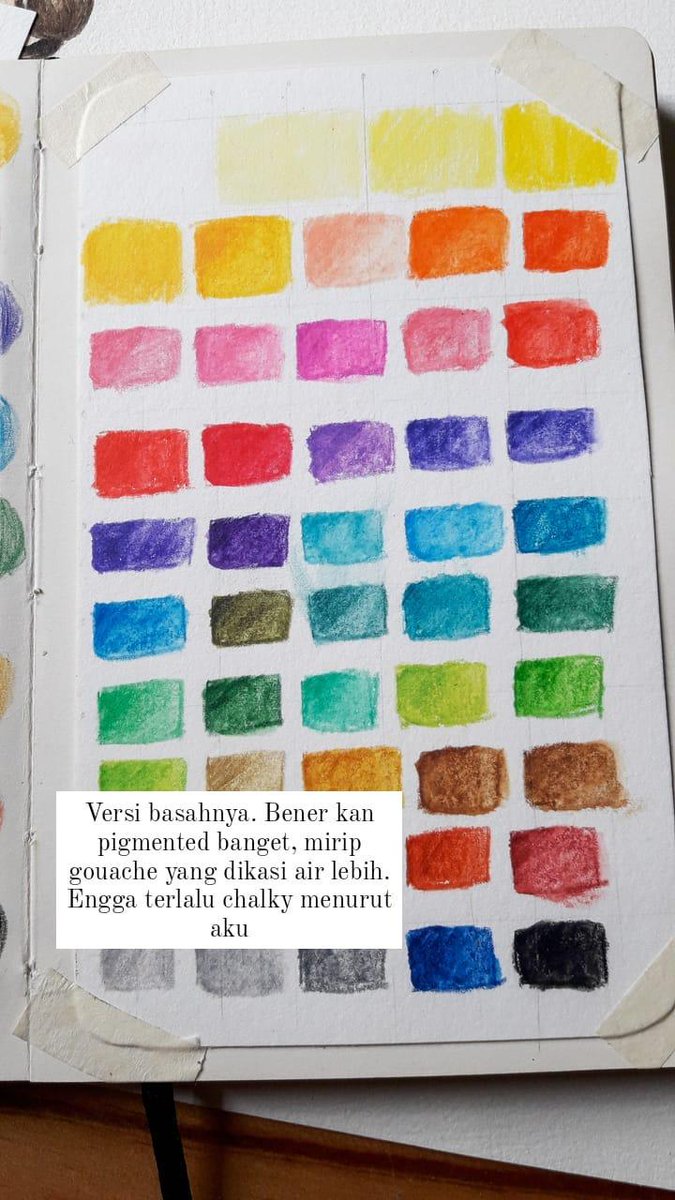 Versi basahnya. Bener kan
pigmented banget, mirip
gouache yang dikasi air lebih.
Engga terlalu chalky menurut
aku